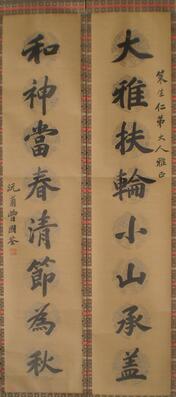 仁弟大人雅正
大雅扶輪小山承盖
和神當春清節為秋
沅甫曾國荃